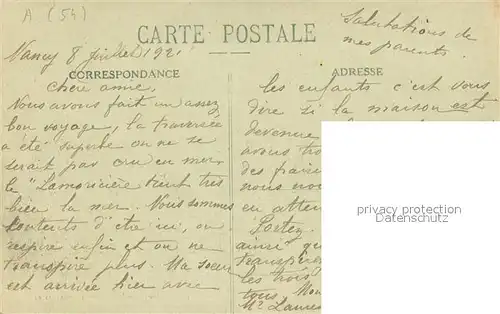 A (54)
Salutations de
mes parents.
CARTE POSTALE
Nancy 8 juillet 1921
CORRESPONDANCE
ADRESSE
chère amie,
Nous avons fait un assez
bon voyage, la traversée
a été superbe on ne se
serait pas cru en mer
le "Lamoricière" tient très
bien la mer. Nous sommes
contents d'être ici, on
respire enfin et on ne
transpire plus. Ma soeur
est arrivée hier avec
les enfants c'est vous
dire si la maison est
devenue
avons
des
nous
en
Portez
ainsi
transpirer
les trois
tous.
privacy protection
Datenschutz